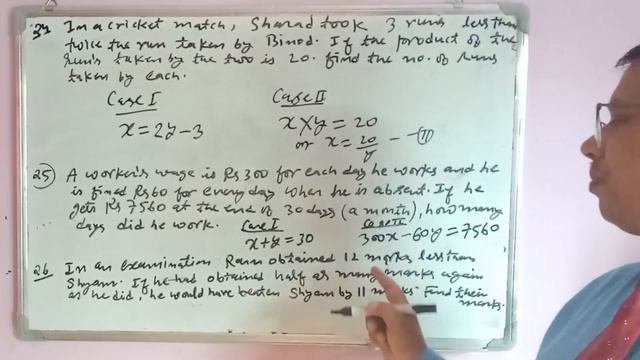 34 In a cricket match, Sharad took 3 runs less than
twice the run taken by Binod. If the product of the
runs taken by the two is 20. find the no. of runs
taken by each.
Case I
Case II
x = 2y - 3
x × y = 20
or x = 20/y — (II)
25 A worker's wage is Rs 300 for each day he works and he
is fined Rs 60 for every day when he is absent. If he
gets Rs 7560 at the end of 30 days (a month), how many
days did he work.
Case I
Case II
x + y = 30
300x - 60y = 7560
26 In an examination Ram obtained 12 marks less than
Shyam. If he had obtained half as many marks again
as he did, he would have beaten Shyam by 11 marks. Find their
marks.